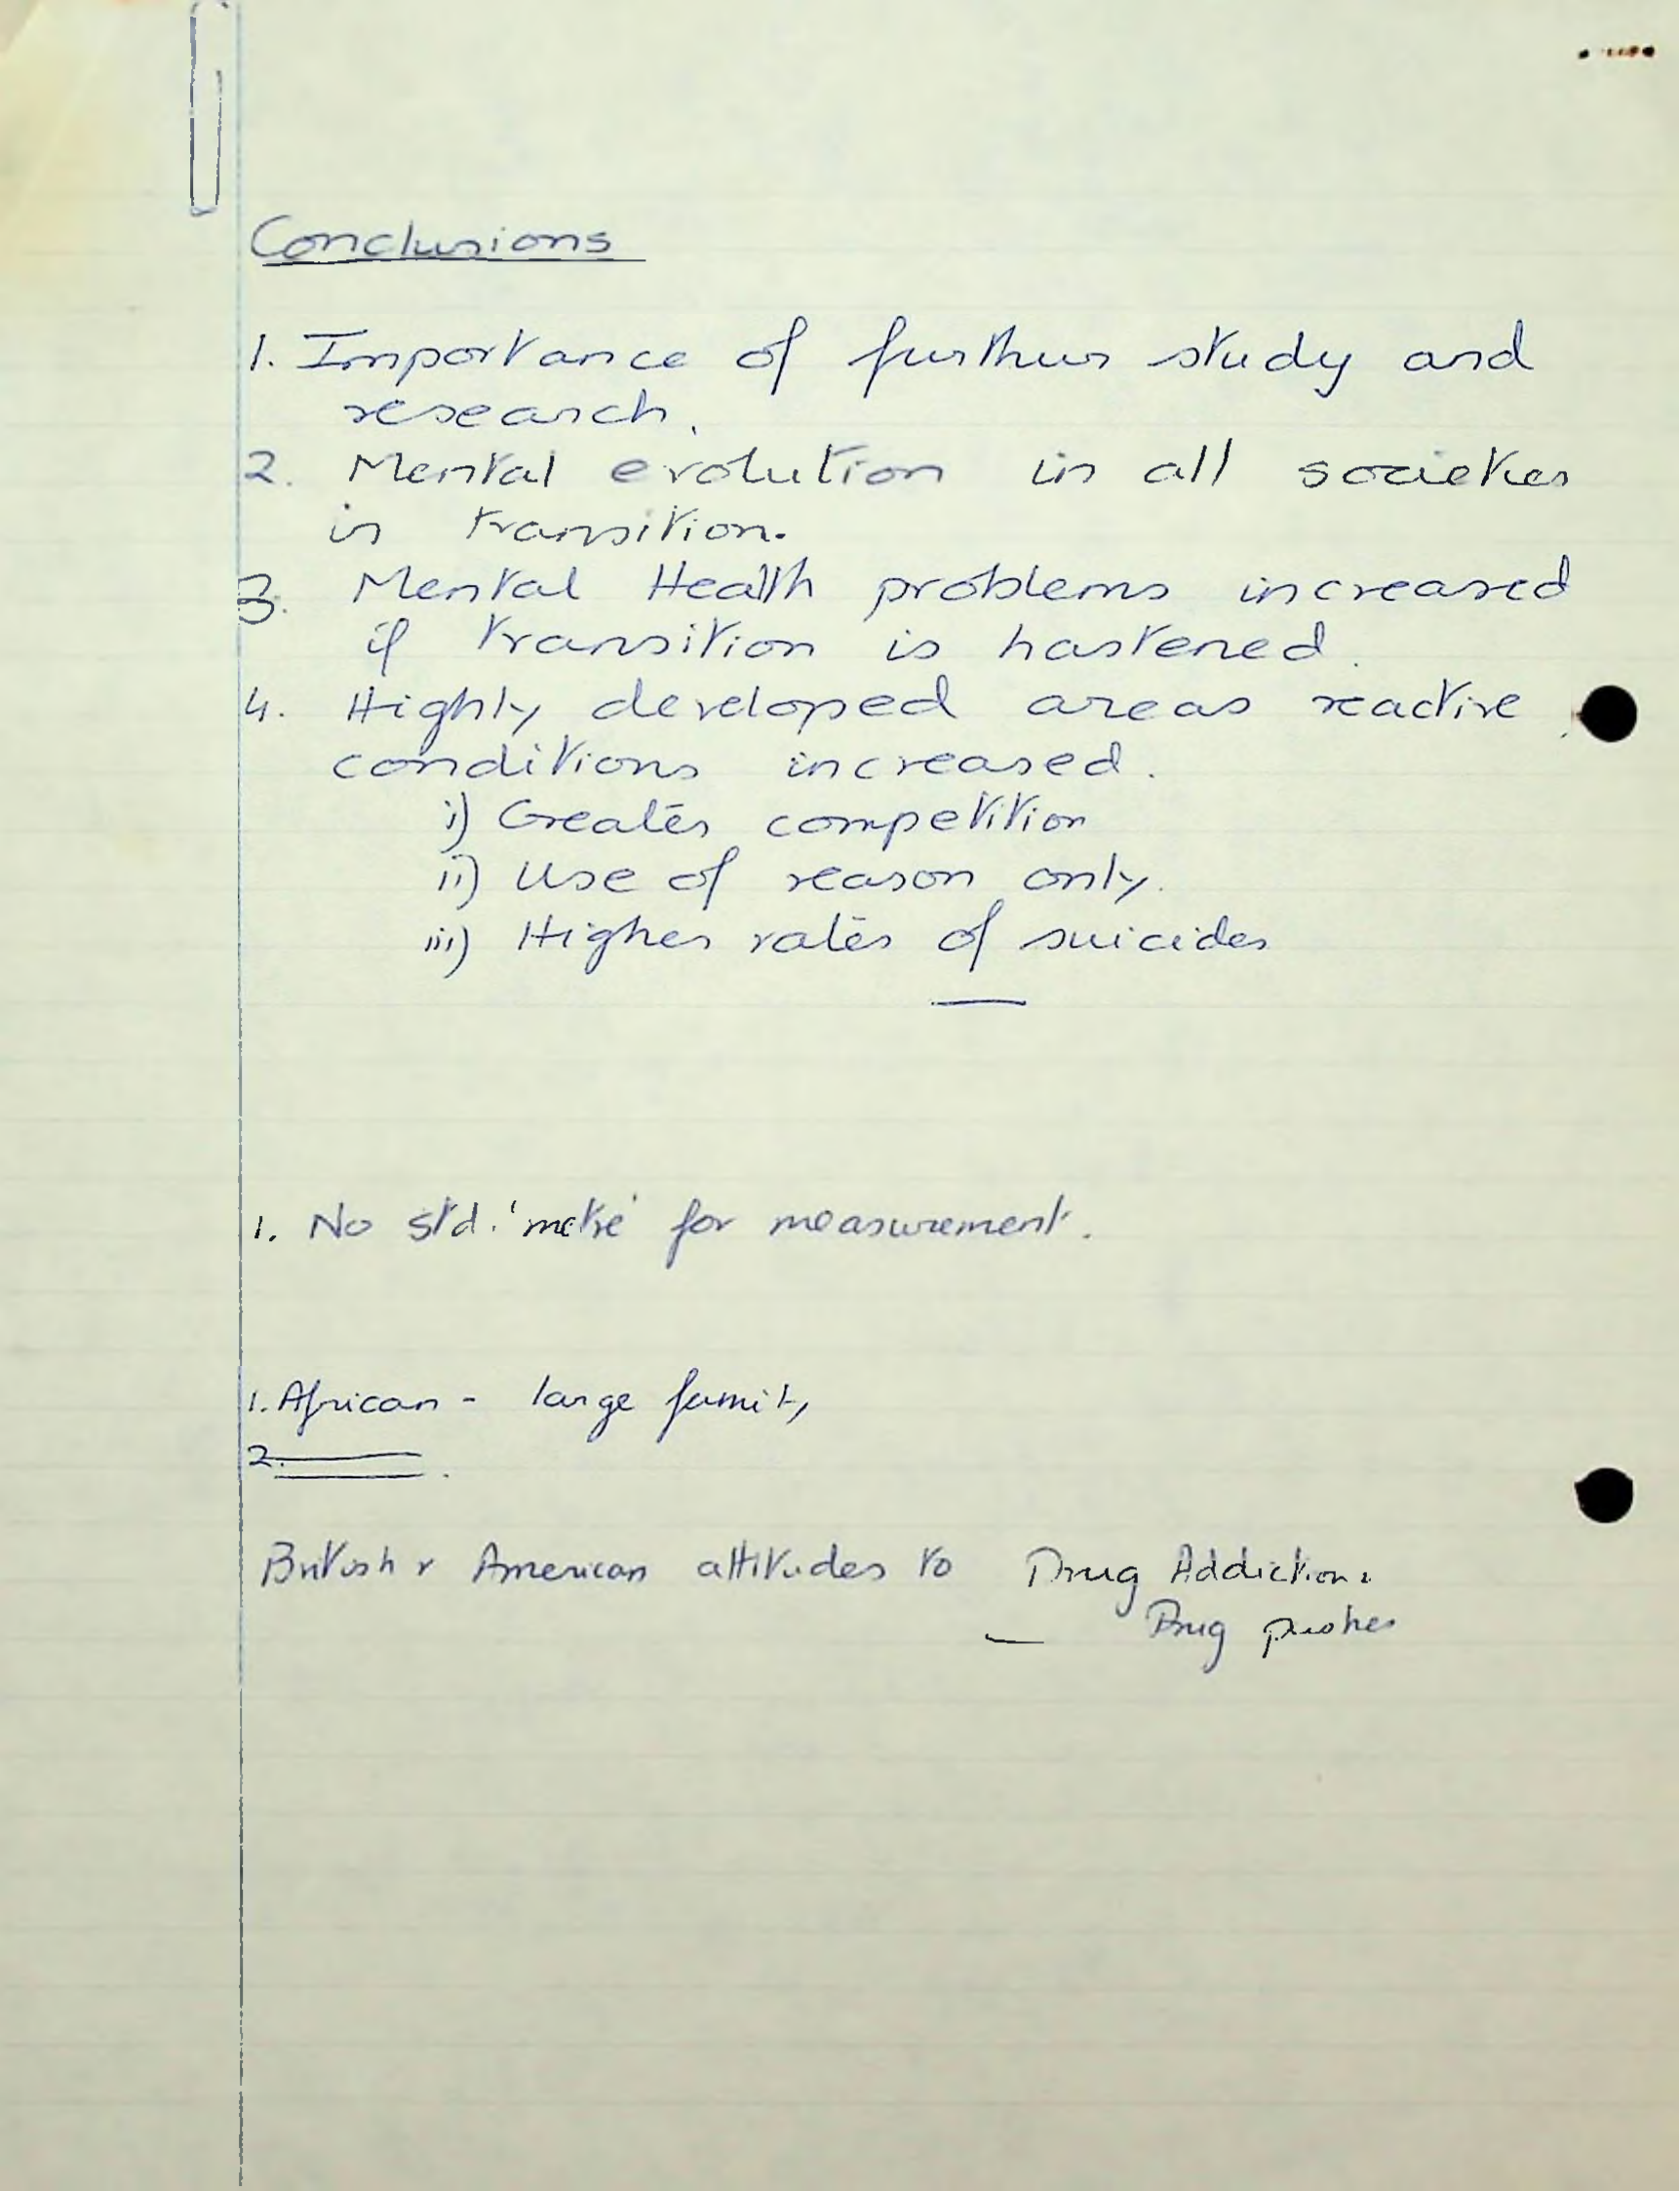 Conclusions
1. Importance of further study and
research.
2. Mental evolution in all societies
in transition.
3. Mental Health problems increased
if transition is hastened.
4. Highly developed areas reactive
conditions increased.
i) Greater competition
ii) Use of reason only.
iii) Higher rates of suicides
1. No std. 'metre' for measurement.
1. African - large family
2.
British & American attitudes to Drug Addiction.
Drug pusher